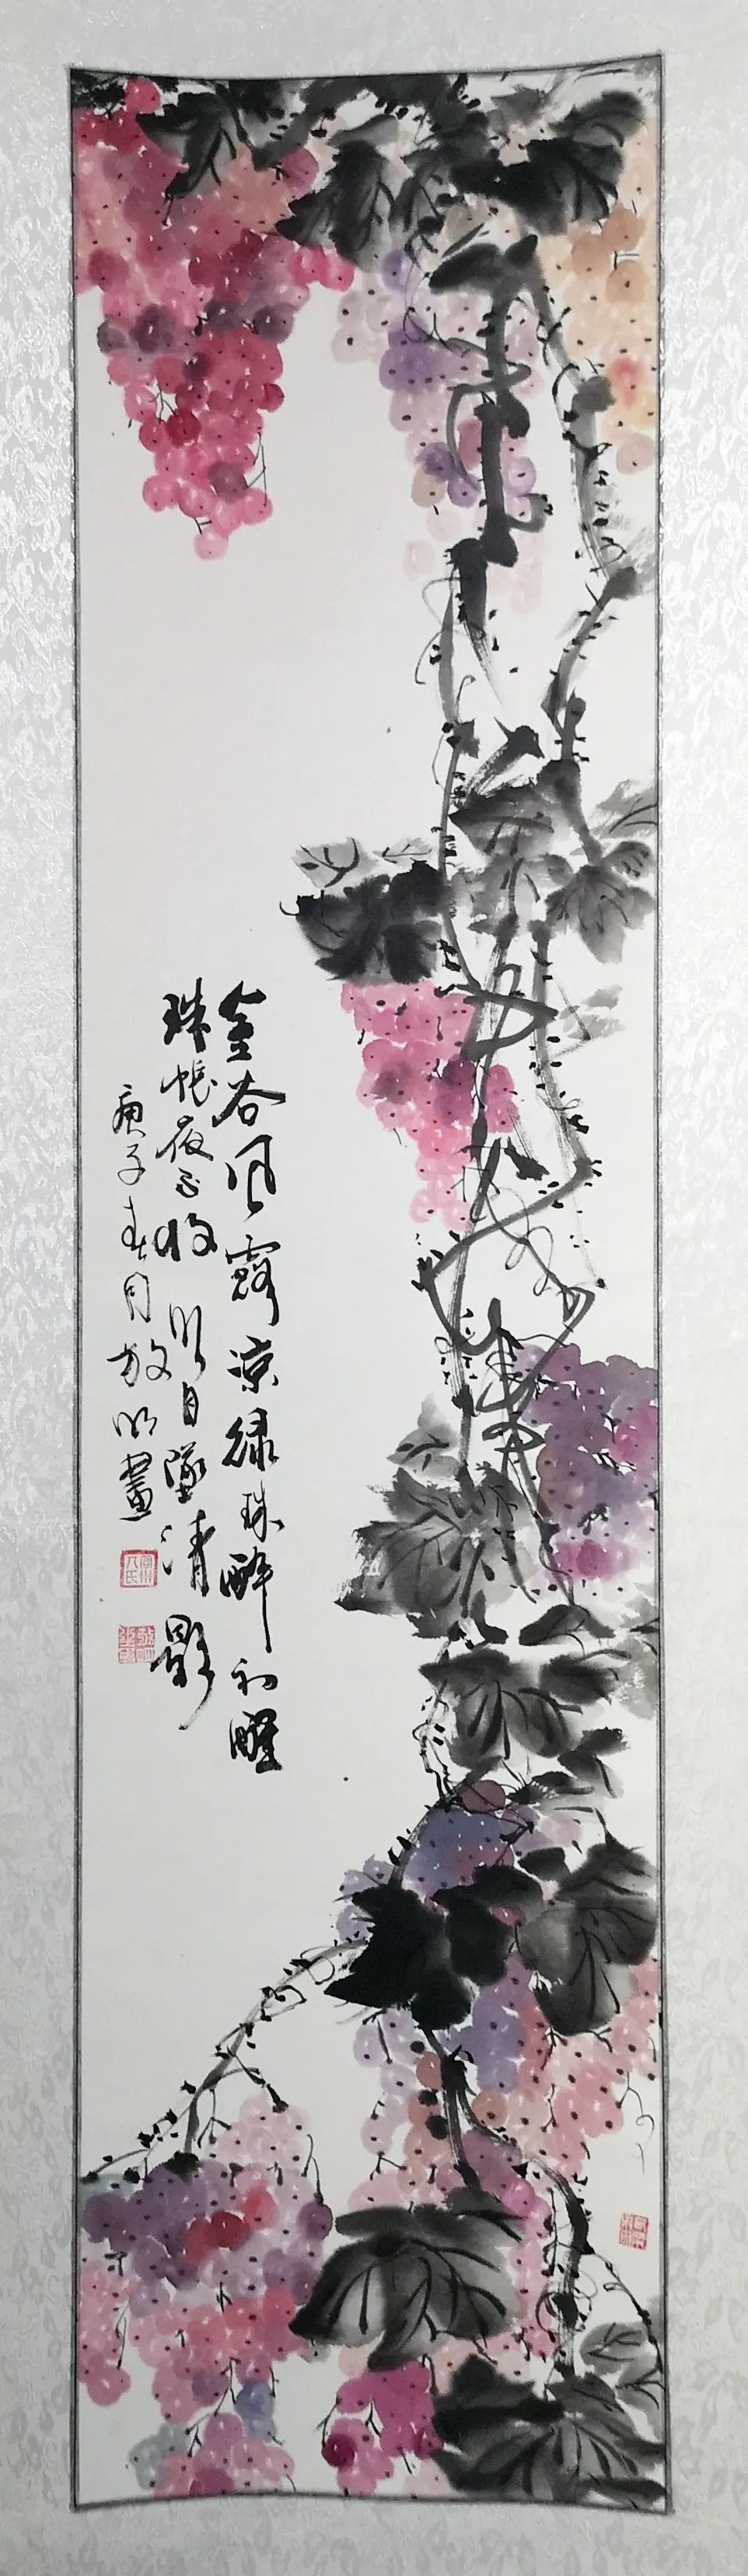 金谷风露凉绿珠醉初醒
珠帐夜不收月明坠清影
庚子春月放明画